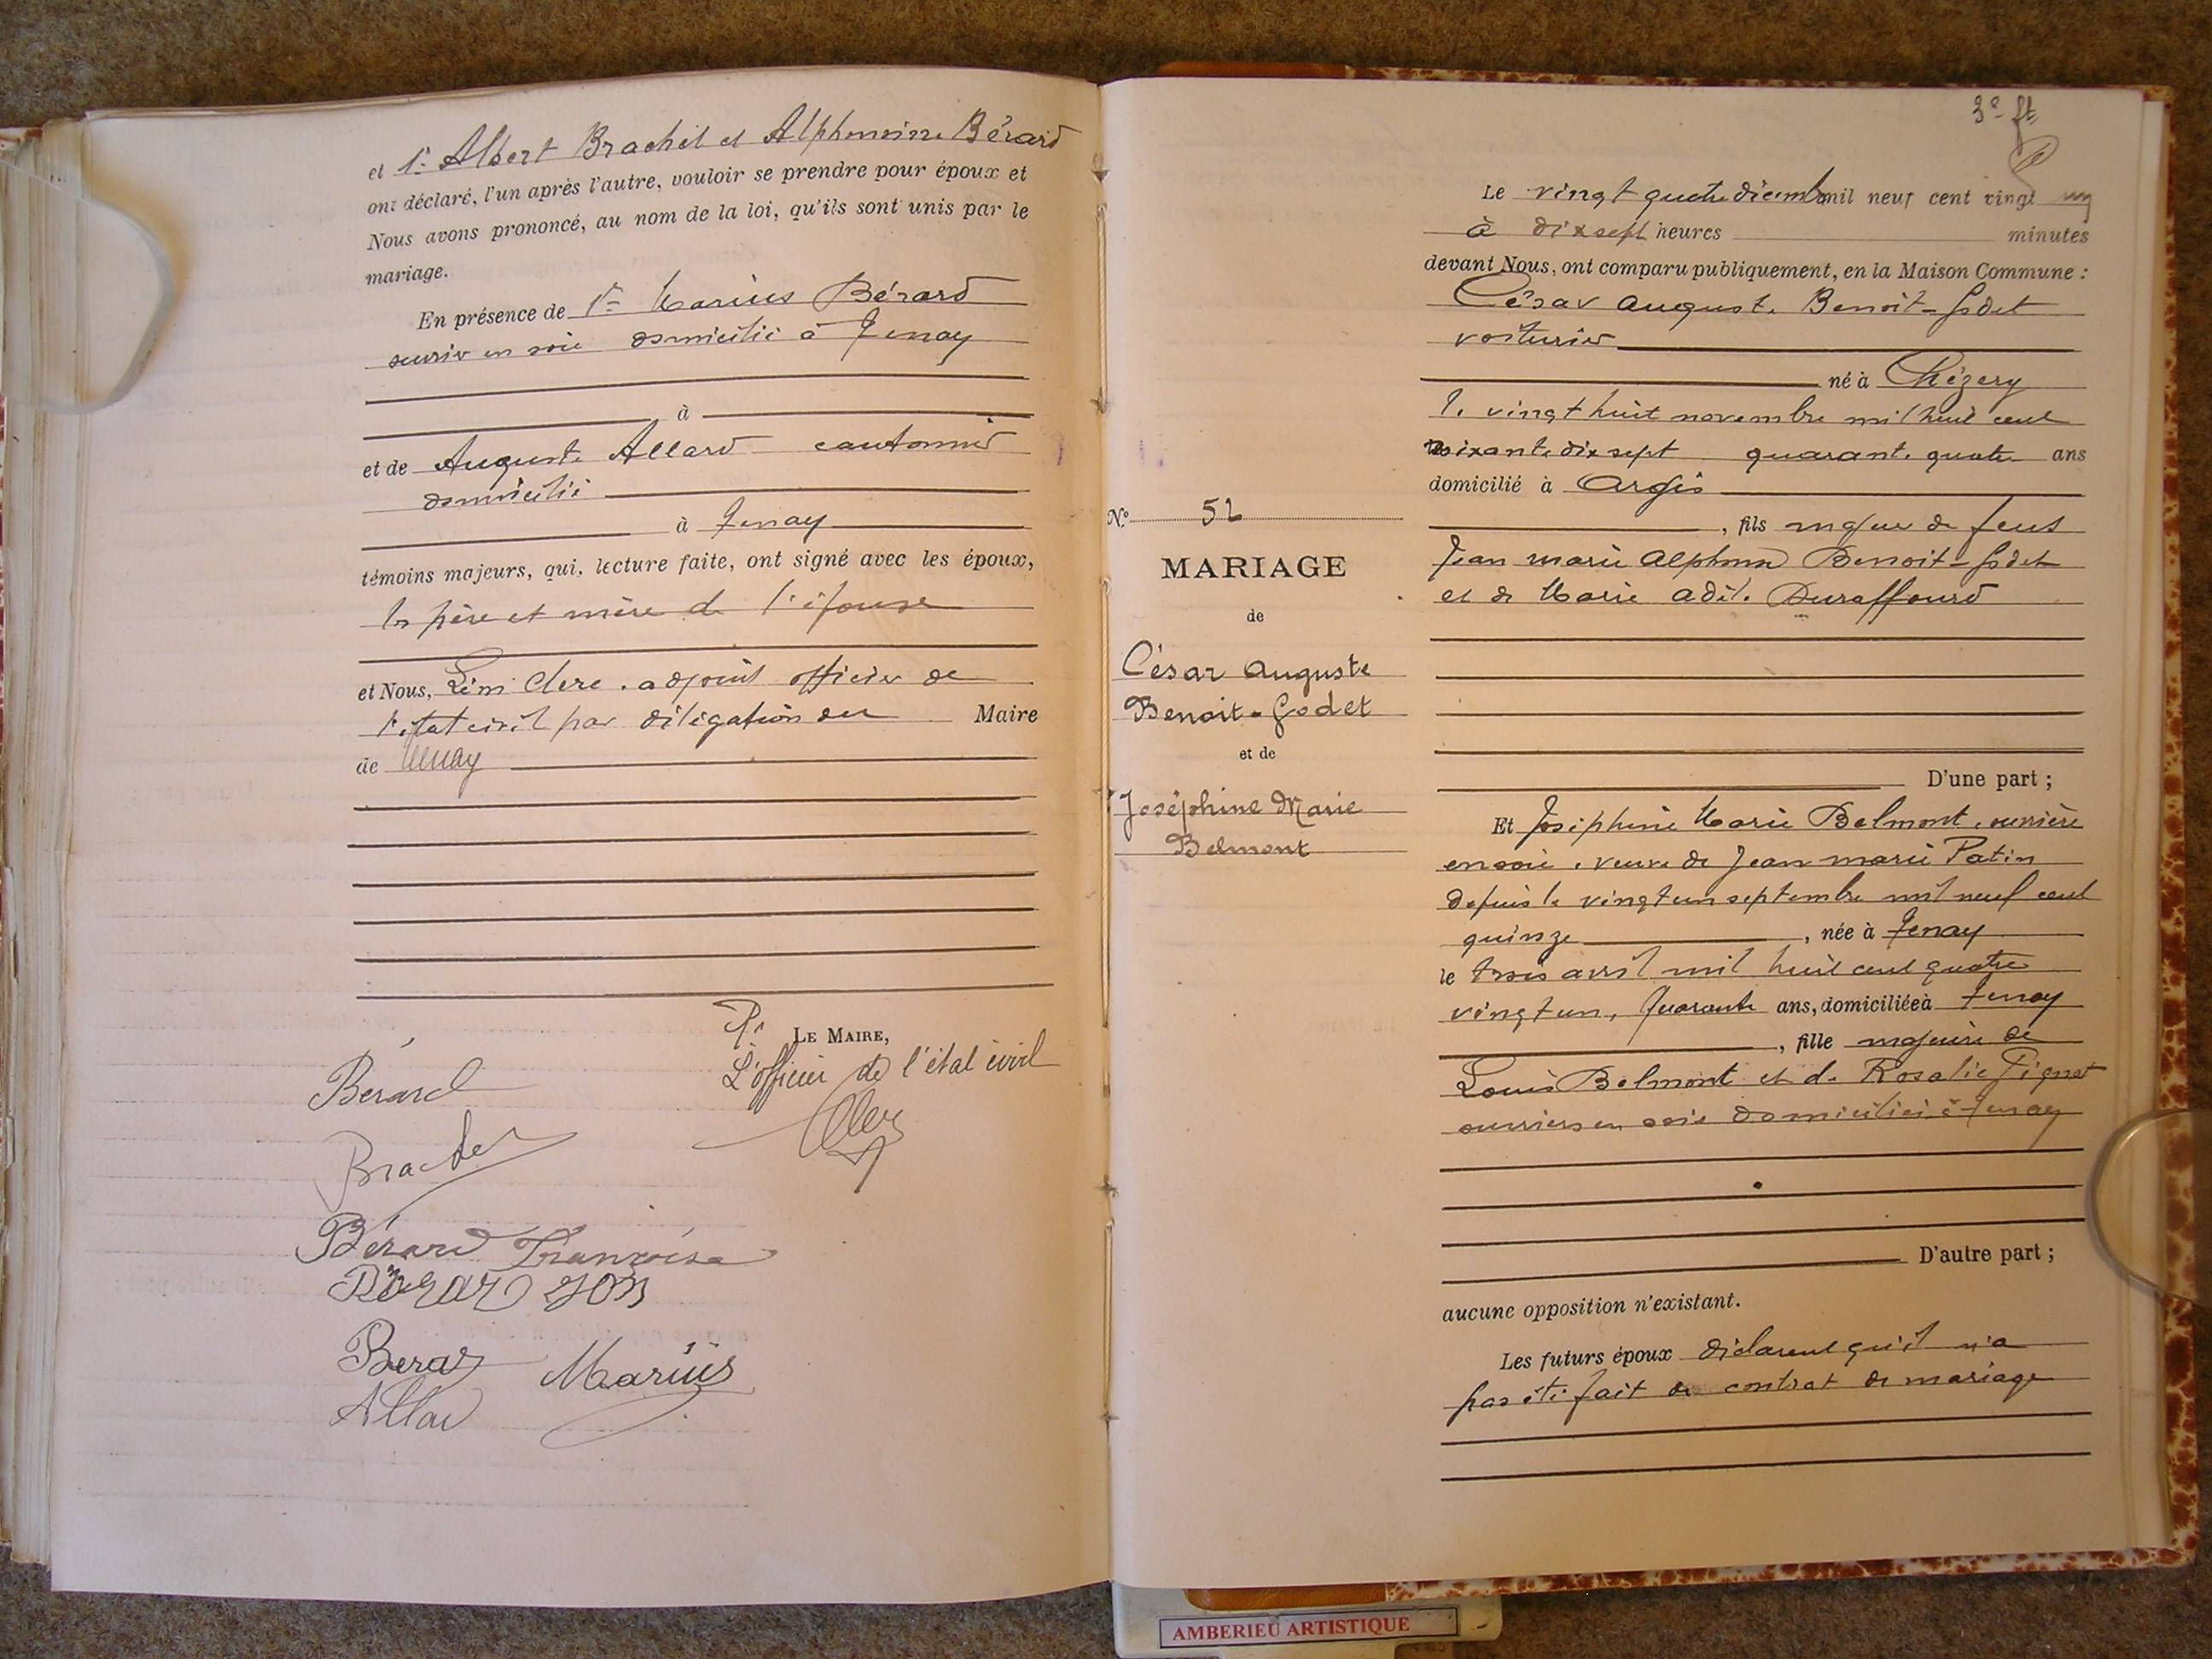 et 1° Albert Brachet et Alphonsine Bérard
ont déclaré, l'un après l'autre, vouloir se prendre pour époux et
Nous avons prononcé, au nom de la loi, qu'ils sont unis par le
mariage.
En présence de 1° Marius Bérard
ouvrier en soie domicilié à Tenay
à
et de Auguste Allard cantonnier
domicilié
à Tenay
témoins majeurs, qui, lecture faite, ont signé avec les époux,
les père et mère de l'épouse
et Nous, Clerc, adjoint officier de
l'état civil par délégation du Maire
de Tenay
Pr LE MAIRE,
L'officier de l'état civil
Clerc
Bérard
Brachet
Bérard Françoise
Berar Marius
Allar
3e ft
Le vingt quatre décembre mil neuf cent vingt un
à dix sept heures minutes
devant Nous, ont comparu publiquement, en la Maison Commune :
César Auguste Benoit-Godet
voiturier
né à Chézery
le vingt huit novembre mil huit cent
soixante dix sept quarante quatre ans
domicilié à Argis
, fils majeur de feus
Jean Marie Alphonse Benoit-Godet
et de Marie Adèle Duraffourd
D'une part ;
N° 52
MARIAGE
de
César Auguste
Benoit-Godet
et de
Joséphine Marie
Belmont
Et Joséphine Marie Belmont, ouvrière
en soie, veuve de Jean Marie Patin
depuis le vingt un septembre mil neuf cent
quinze , née à Tenay
le trois avril mil huit cent quatre
vingt un, quarante ans, domiciliée à Tenay
, fille majeure de
Louis Belmont et de Rosalie Pignet
ouvriers en soie domiciliés à Tenay
D'autre part ;
aucune opposition n'existant.
Les futurs époux déclarent qu'il n'a
pas été fait de contrat de mariage
AMBERIEU ARTISTIQUE